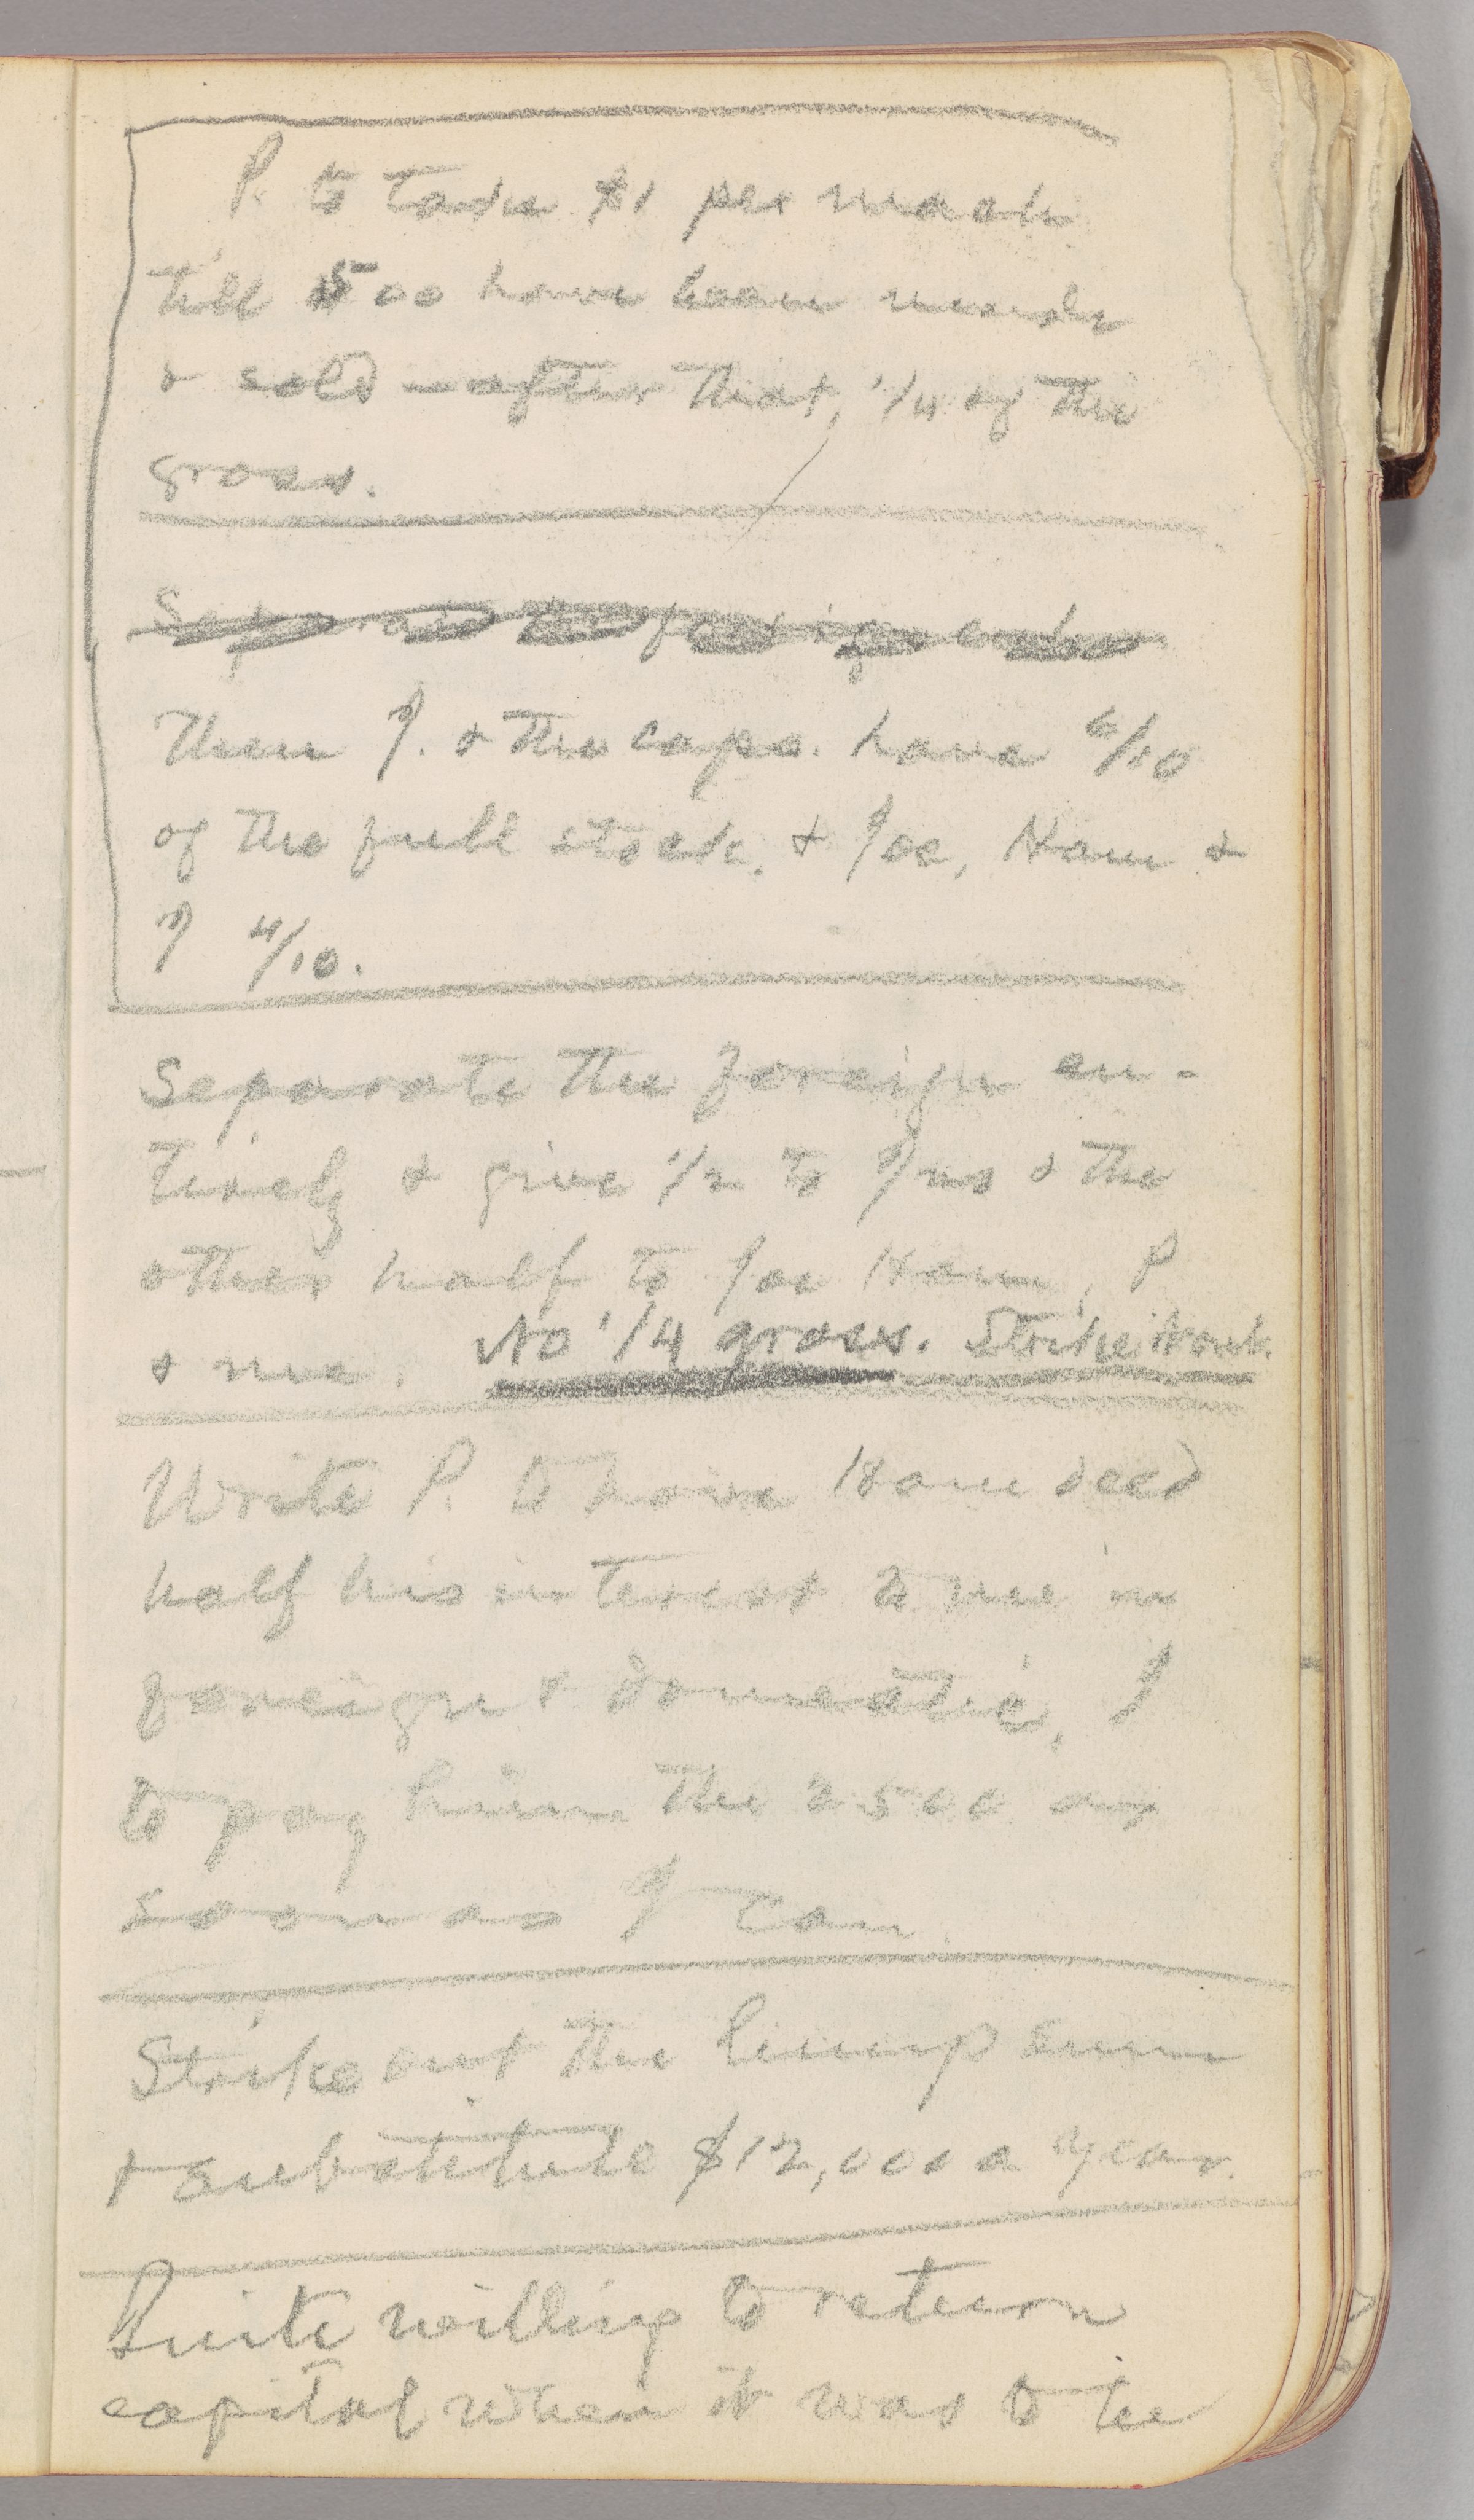 P. to take $1 per mach
till 500 have been made
& sold — after that, 1/4 of the
gross.
Separate the foreign
Then P. & the caps. have 6/10
of the full stock, & Joe, Ham &
I 4/10.
Separate the foreign en-
tirely & give 1/2 to Jno & the
other half to Joe Ham, P
& me. No 1/4 gross. Strike it out.
Write P. to have Ham deed
half his interest to me in
foreign & domestic, I
to pay him the 2500 as
soon as I can.
Strike out the lump sum
& substitute $12,000 a year.
Quite willing to return
capital when it was to be